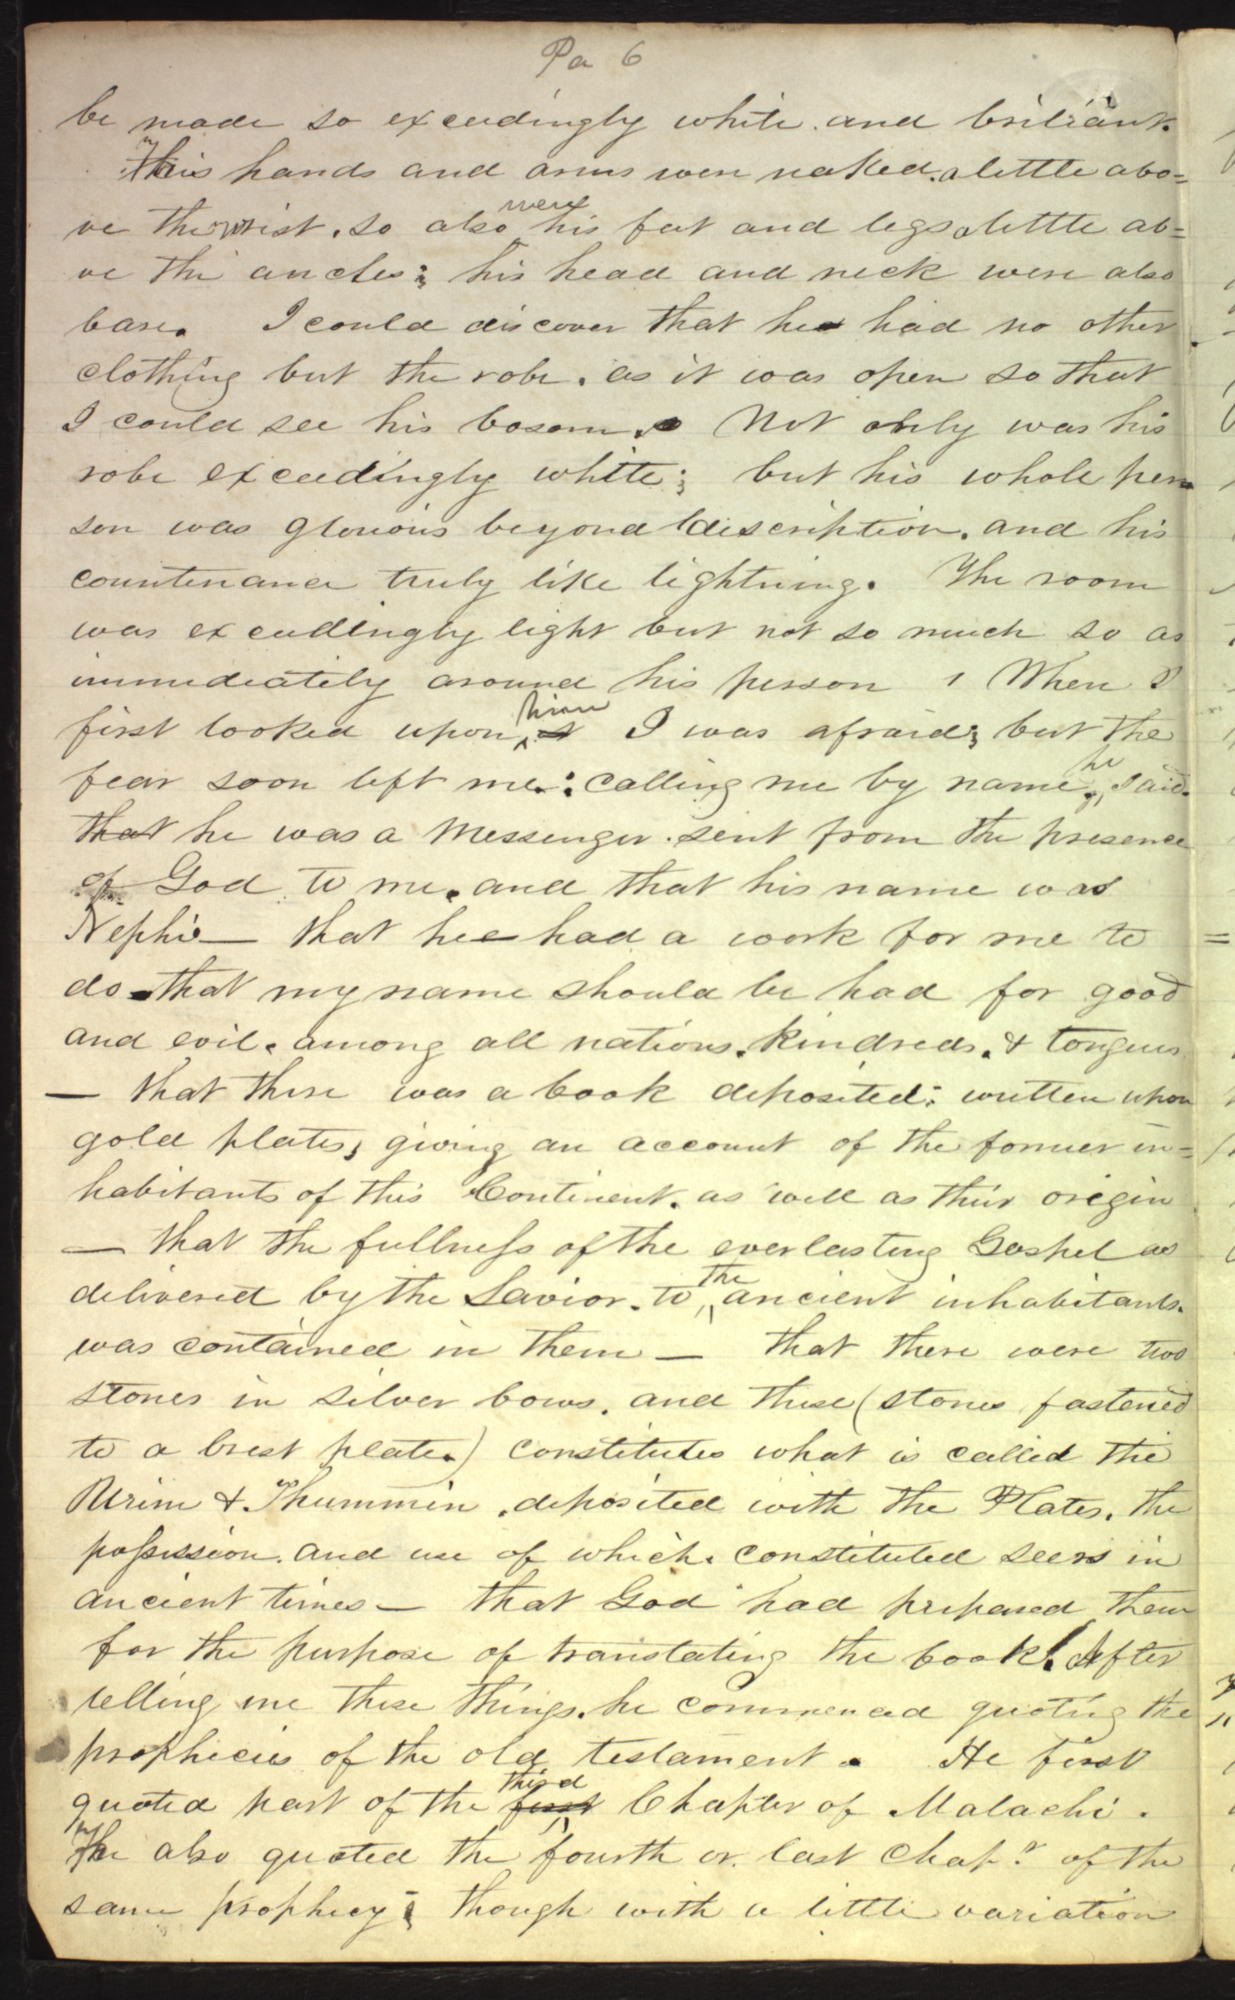 Pa 6
be made so exceedingly white. and briliant.
His hands and arms were naked. a little abo=
ve the wrist. so also were his feet and legs a little ab=
ve the ancles; his head and neck were also
bare. I could discover that he had no other
clothing but the robe. as it was open so that
I could see his bosom. Not only was his
robe exceedingly white; but his whole per
son was glorious beyond discription. and his
countenance truly like lightning. The room
was exceedingly light but not so much so as
immediately around his person When I
first looked upon him I was afraid; but the
fear soon left me: calling me by name, he said.
that he was a Messenger. sent from the presence
of God to me. and that his name was
Nephi — that he had a work for me to
do. that my name should be had for good
and evil. among all nations. kindreds. & tongues
— that there was a book deposited; written upon
gold plates, giving an account of the former in=
habitants of this Continent. as well as their origin
— that the fullness of the everlasting Gospel as
delivered by the Savior. to the ancient inhabitants.
was contained in them — that there were two
stones in silver bows. and these (stones fastened
to a brest plate.) constitutes what is called the
Urim & Thummin. deposited with the Plates. the
possession. and use of which. constituted seers in
ancient times — that God had prepared them
for the purpose of translating the book! After
telling me these things. he commenced quoting the
prophecies of the old testament. He first
quoted part of the first third Chapter of Malachi.
He also quoted the fourth or. last Chap.r of the
same prophecy; though with a little variation